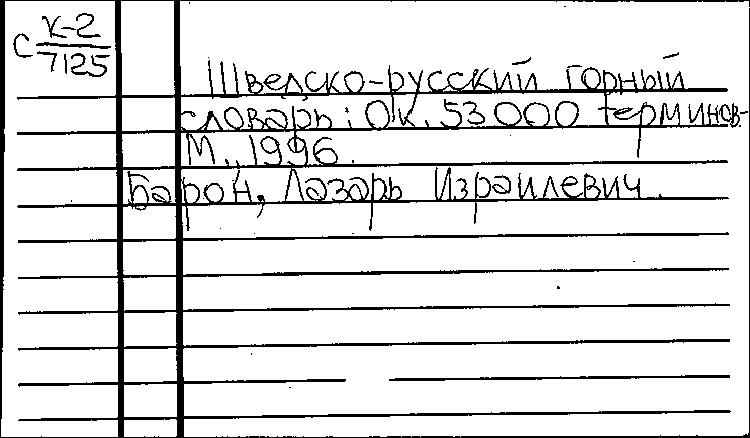 К-2
С
7125
Шведско-русский горный
словарь: Ок. 53000 терминов.-
М., 1996.
Барон, Лазарь Израилевич.